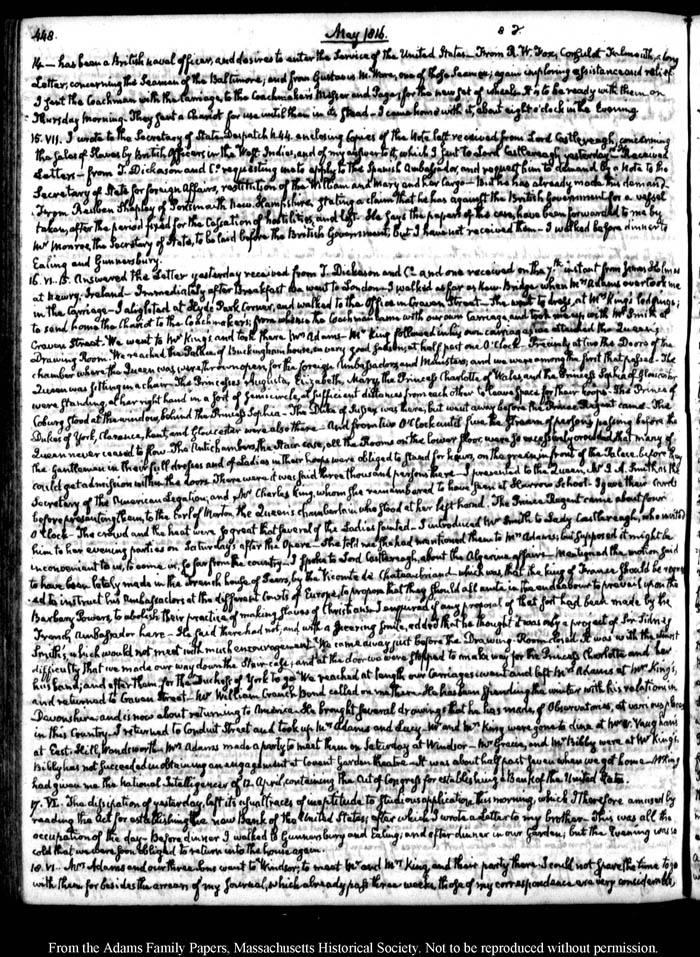 448. May 1816.
14 — has been a British naval officer, and desires to enter the Service of the United States — From R. W. Fox, Consul at Falmouth, a long
Letter, concerning the Seamen of the Baltimore, and from Gustavus one of those Seamen, again imploring assistance and relief.
I sent the Coachman with the Carriage, to the Coachmakers and for the new set of wheels. It is to be ready with them on
Thursday Morning. They sent a Chariot for use until then in its stead — I came home with it, about eight o'clock in the Evening.
15. VII. I wrote to the Secretary of State Despatch N. 44. enclosing Copies of the Note last received from Lord Castlereagh, concerning
the Sales of Slaves by British Officers in the West Indies, and of my answer to it, which I sent to Lord Castlereagh yesterday — Received
Letters — from T. Dickason and Co. requesting me to apply to the Spanish Ambassador, and request him to demand by a Note to the
Secretary of State for foreign Affairs, restitution of the William and Mary and her Cargo — But he has already made his demand —
From Reuben Shapley of Portsmouth New Hampshire, stating a claim that he has against the British Government for a vessel
taken, after the period fixed for the Cessation of hostilities, and lost. He says the papers of the case, have been forwarded to me by
Mr Monroe, the Secretary of State, to be laid before the British Government, but I have not received them — I walked before dinner to
Ealing and Gunnersbury.
16. VI. 15. Answered the Letter yesterday received from T. Dickason and Co. and one received on the 7th instant from James Holmes
at Newry, Ireland — Immediately after Breakfast we went to London — I walked as far as Kew Bridge, when Mrs Adams overtook me
in the Carriage — I alighted at Hyde Park Corner, and walked to the Office in Craven Street — She went to dress, at Mrs King's lodgings;
to send home the Chariot to the Coachmakers; from whence the Coachman came with our own Carriage, and took me up with Mr Smith at
Craven Street. We went to Mr King's and took there Mrs Adams — Mr King followed in his own carriage as we attended the Queen's
Drawing Room. We reached the Palace of Buckingham house, in very good season, at half past one O'Clock. Precisely at two the Doors of the
chamber where the Queen was, were thrown open for the foreign Ambassadors and Ministers, and we were among the first that passed — The
Queen was sitting in a chair — The Princesses Augusta, Elizabeth, Mary, the Princess Charlotte of Wales and the Princess Sophia of Gloucester,
were standing, at her right hand in a sort of Semicircle, at sufficient distances from each other to leave space for their hoops. The Prince of
Coburg stood at the window, behind the Princess Sophia — The Duke of Sussex was there, but went away before the Prince Regent came. The
Dukes of York, Clarence, Kent, and Gloucester were also there — And from two O'Clock until five the stream of persons passing before the
Queen never ceased to flow. The Antichambers, the Stair case, all the Rooms on the lower floor, were so excessively crowded that many of
the Gentlemen in their full dresses and of Ladies in their hoops were obliged to stand for hours, on the green, in front of the Palace, before they
could get admission within the doors. There were it was said three thousand persons there — I presented to the Queen, Mr J. A. Smith, as the
Secretary of the American Legation, and Mr Charles King, whom she remembered to have seen at Harrow School. I gave their cards
before presenting them, to the Earl of Morton, the Queen's chamberlain who stood at her left hand. The Prince Regent came about four
O'Clock — The crowd and the heat were so great that several of the Ladies fainted — I introduced Mr Smith to Lady Castlereagh, who invited
him to her evening parties on Saturdays after the Opera — She told me she had mentioned them to Mrs Adams, but supposed it might be
inconvenient to us, to come in, so far from the country — I spoke to Lord Castlereagh, about the Algerine affairs — Mentioned the motion said
to have been lately made in the French house of Peers, by the Vicomte de Chateaubriand — which was that the king of France should be request-
-ed to instruct his Ambassadors at the different Courts of Europe, to propose that they should all unite in and labour to prevail upon the
Barbary Powers, to abolish their practice of making slaves of Christians. I enquired if any proposal of that sort had been made by the
French Ambassador here — He said there had not, and with a sneering smile, added that he thought it was only a project of Sir Sidney
Smith's, which would not meet with much encouragement. We came away just before the Drawing-Room closed. It was with the utmost
difficulty that we made our way down the Stair case; and at the door we were stopped to make way for the Princess Charlotte and her
husband; and after them for the Duchess of York to go. We reached at length our Carriages went and left Mrs Adams at Mr King's,
and returned to Craven Street. Mr William Cranch Bond called on me there. He has been spending the winter with his relations in
Devonshire and is now about returning to America. He brought several drawings that he has made, of Observatories, at various places
in this Country. I returned to Conduit Street and took up Mrs Adams and Lucy. Mr and Mrs King were gone to dine at Mr W. Vaughan's
at East Hill, Wandsworth. Mrs Adams made a party to meet them on Saturday at Windsor — Mr Gracie, and Mr Bibby were at Mr King's.
Bibby has not succeeded in obtaining an engagement at Covent Garden theatre. It was about half past seven when we got home — Mr King
had given me the National Intelligencer of 12. April, containing the Act of Congress for establishing a Bank of the United States.
17. VI. The dissipation of yesterday, left its usual traces of ineptitude to studious application this morning, which I therefore amused by
reading the Act for establishing the new Bank of the United States; after which I wrote a letter to my brother. This was all the
occupation of the day — Before dinner I walked to Gunnersbury and Ealing; and after dinner in our Garden; but the Evening was so
cold that we were soon obliged to return into the house again.
18. VI. Mrs Adams and our three Sons went to Windsor, to meet Mr and Mrs King and their party there. I could not spare the time to go
with them for besides the arrears of my Journal, which already pass three weeks, those of my correspondence are very considerable,
From the Adams Family Papers, Massachusetts Historical Society. Not to be reproduced without permission.